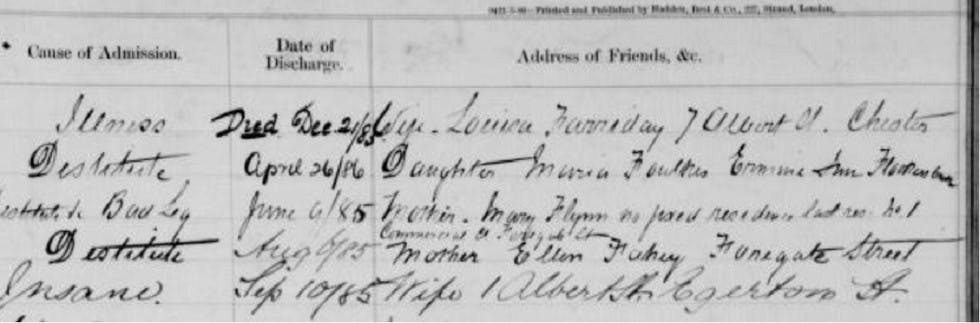 Printed and Published by Hadden, Best & Co., 227, Strand, London.
Cause of Admission. Date of Discharge. Address of Friends, &c.
Illness Died Dec 21/85 Wife - Louisa Farriday 7 Albert St. Chester
Destitute April 26/86 Daughter Maria Faulkes Ermine Inn
Bad Leg June 9/85 Mother - Mary Flynn no fixed residence last res: No 1
Commercial Ct Foregate St
Destitute Aug 6/85 Mother Ellen Fahey Foregate Street
Insane. Sep 10/85 Wife 1 Albert St. Egerton St.